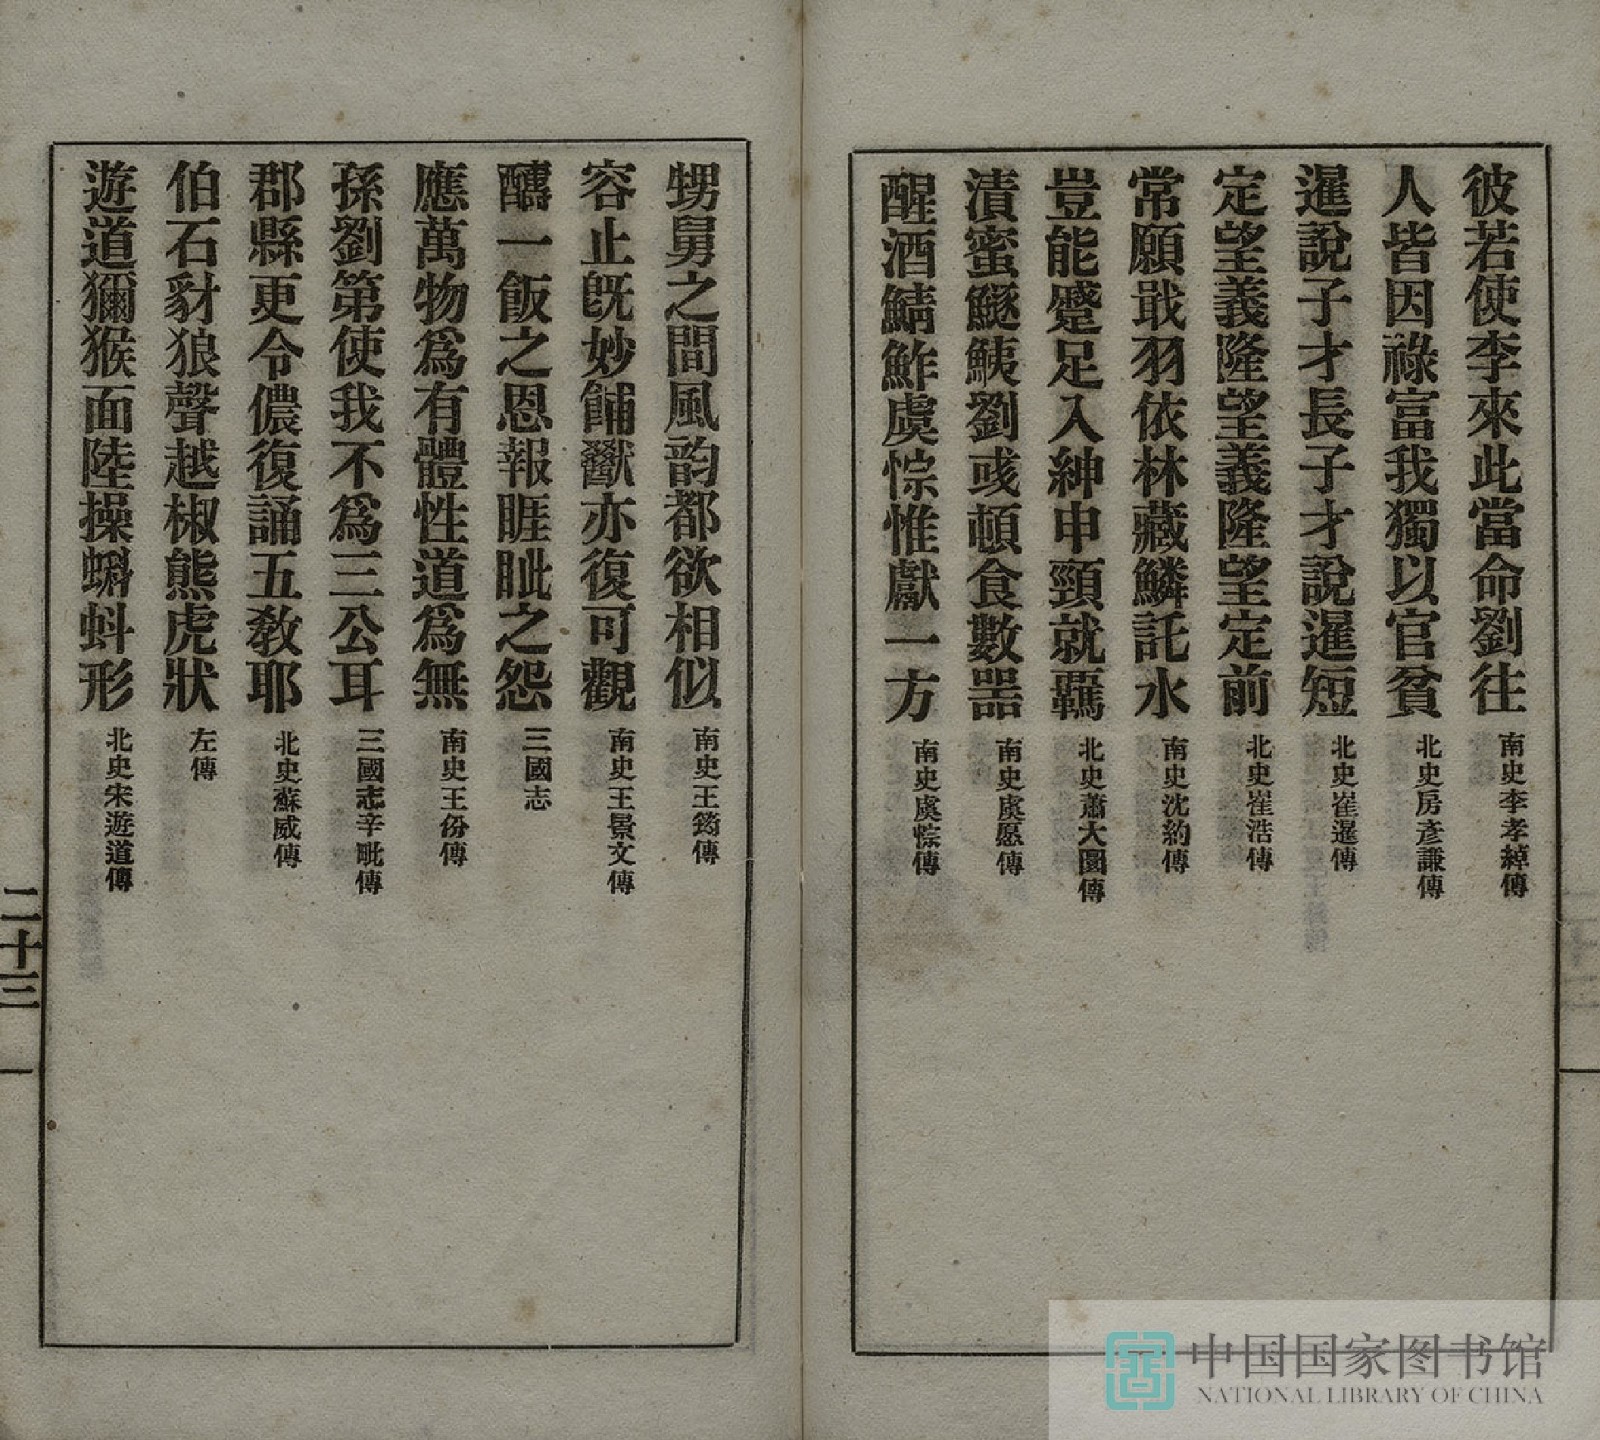 彼若使李來此當命劉往 南史李孝綽傳
人皆因祿富我獨以官貧 北史房彥謙傳
暹說子才長子才說暹短 北史崔暹傳
定望義隆望義隆望定前 北史崔浩傳
常願戢羽依林藏鱗託水 南史沈約傳
豈能蹙足入紳申頸就羈 北史蕭大圜傳
漬蜜鱁鮧劉彧頓食數器 南史虞愿傳
醒酒鯖鮓虞悰惟獻一方 南史虞悰傳
甥舅之間風韵都欲相似 南史王筠傳
容止旣妙餔歠亦復可觀 南史王景文傳
醻一飯之恩報睚眦之怨 三國志
應萬物爲有體性道爲無 南史王份傳
孫劉第使我不爲三公耳 三國志辛毗傳
郡縣更令儂復誦五敎耶 北史蘇威傳
伯石豺狼聲越椒熊虎狀 左傳
遊道獼猴面陸操蝌蚪形 北史宋遊道傳
二十三
中国国家图书馆
NATIONAL LIBRARY OF CHINA